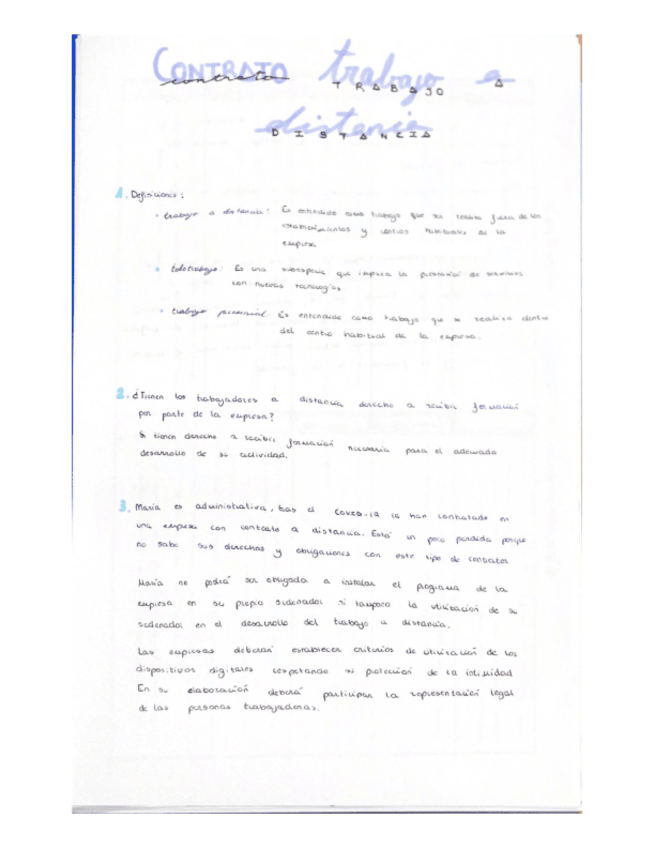 CONTRATO trabajo a
contrato TRABAJO A
distancia
DISTANCIA
1. Definiciones:
• trabajo a distancia: Es entendido como trabajo que se realiza fuera de los
establecimientos y centros habituales de la
empresa
• teletrabajo: Es una subespecie que implica la prestación de servicios
con nuevas tecnologías
• trabajo presencial: Es entendido como trabajo que se realiza dentro
del centro habitual de la empresa.
2. ¿Tienen los trabajadores a distancia derecho a recibir formación
por parte de la empresa?
Si tienen derecho a recibir formación necesaria para el adecuado
desarrollo de su actividad.
3. María es administrativa, tras el COVID-19 la han contratado en
una empresa con contrato a distancia. Está un poco perdida porque
no sabe sus derechos y obligaciones con este tipo de contratos
María no podrá ser obligada a instalar el programa de la
empresa en su propio ordenador ni tampoco la utilización de su
ordenador en el desarrollo del trabajo a distancia.
Las empresas deberán establecer criterios de utilización de los
dispositivos digitales respetando su protección de la intimidad
En su elaboración deberá participar la representación legal
de las personas trabajadoras.